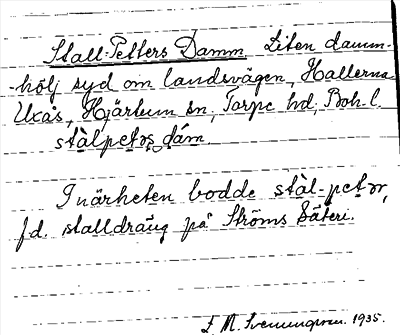 Stall-Petters Damm. Liten damm-
-hölj syd om landsvägen, Hallerna
Uxås, Hjärtum sn, Torpe hd, Boh. l.
stàlpetəs dám.
I närheten bodde stàl-petər,
f.d. stalldräng på Ströms Säteri.
E. M. Svenungsson 1935.